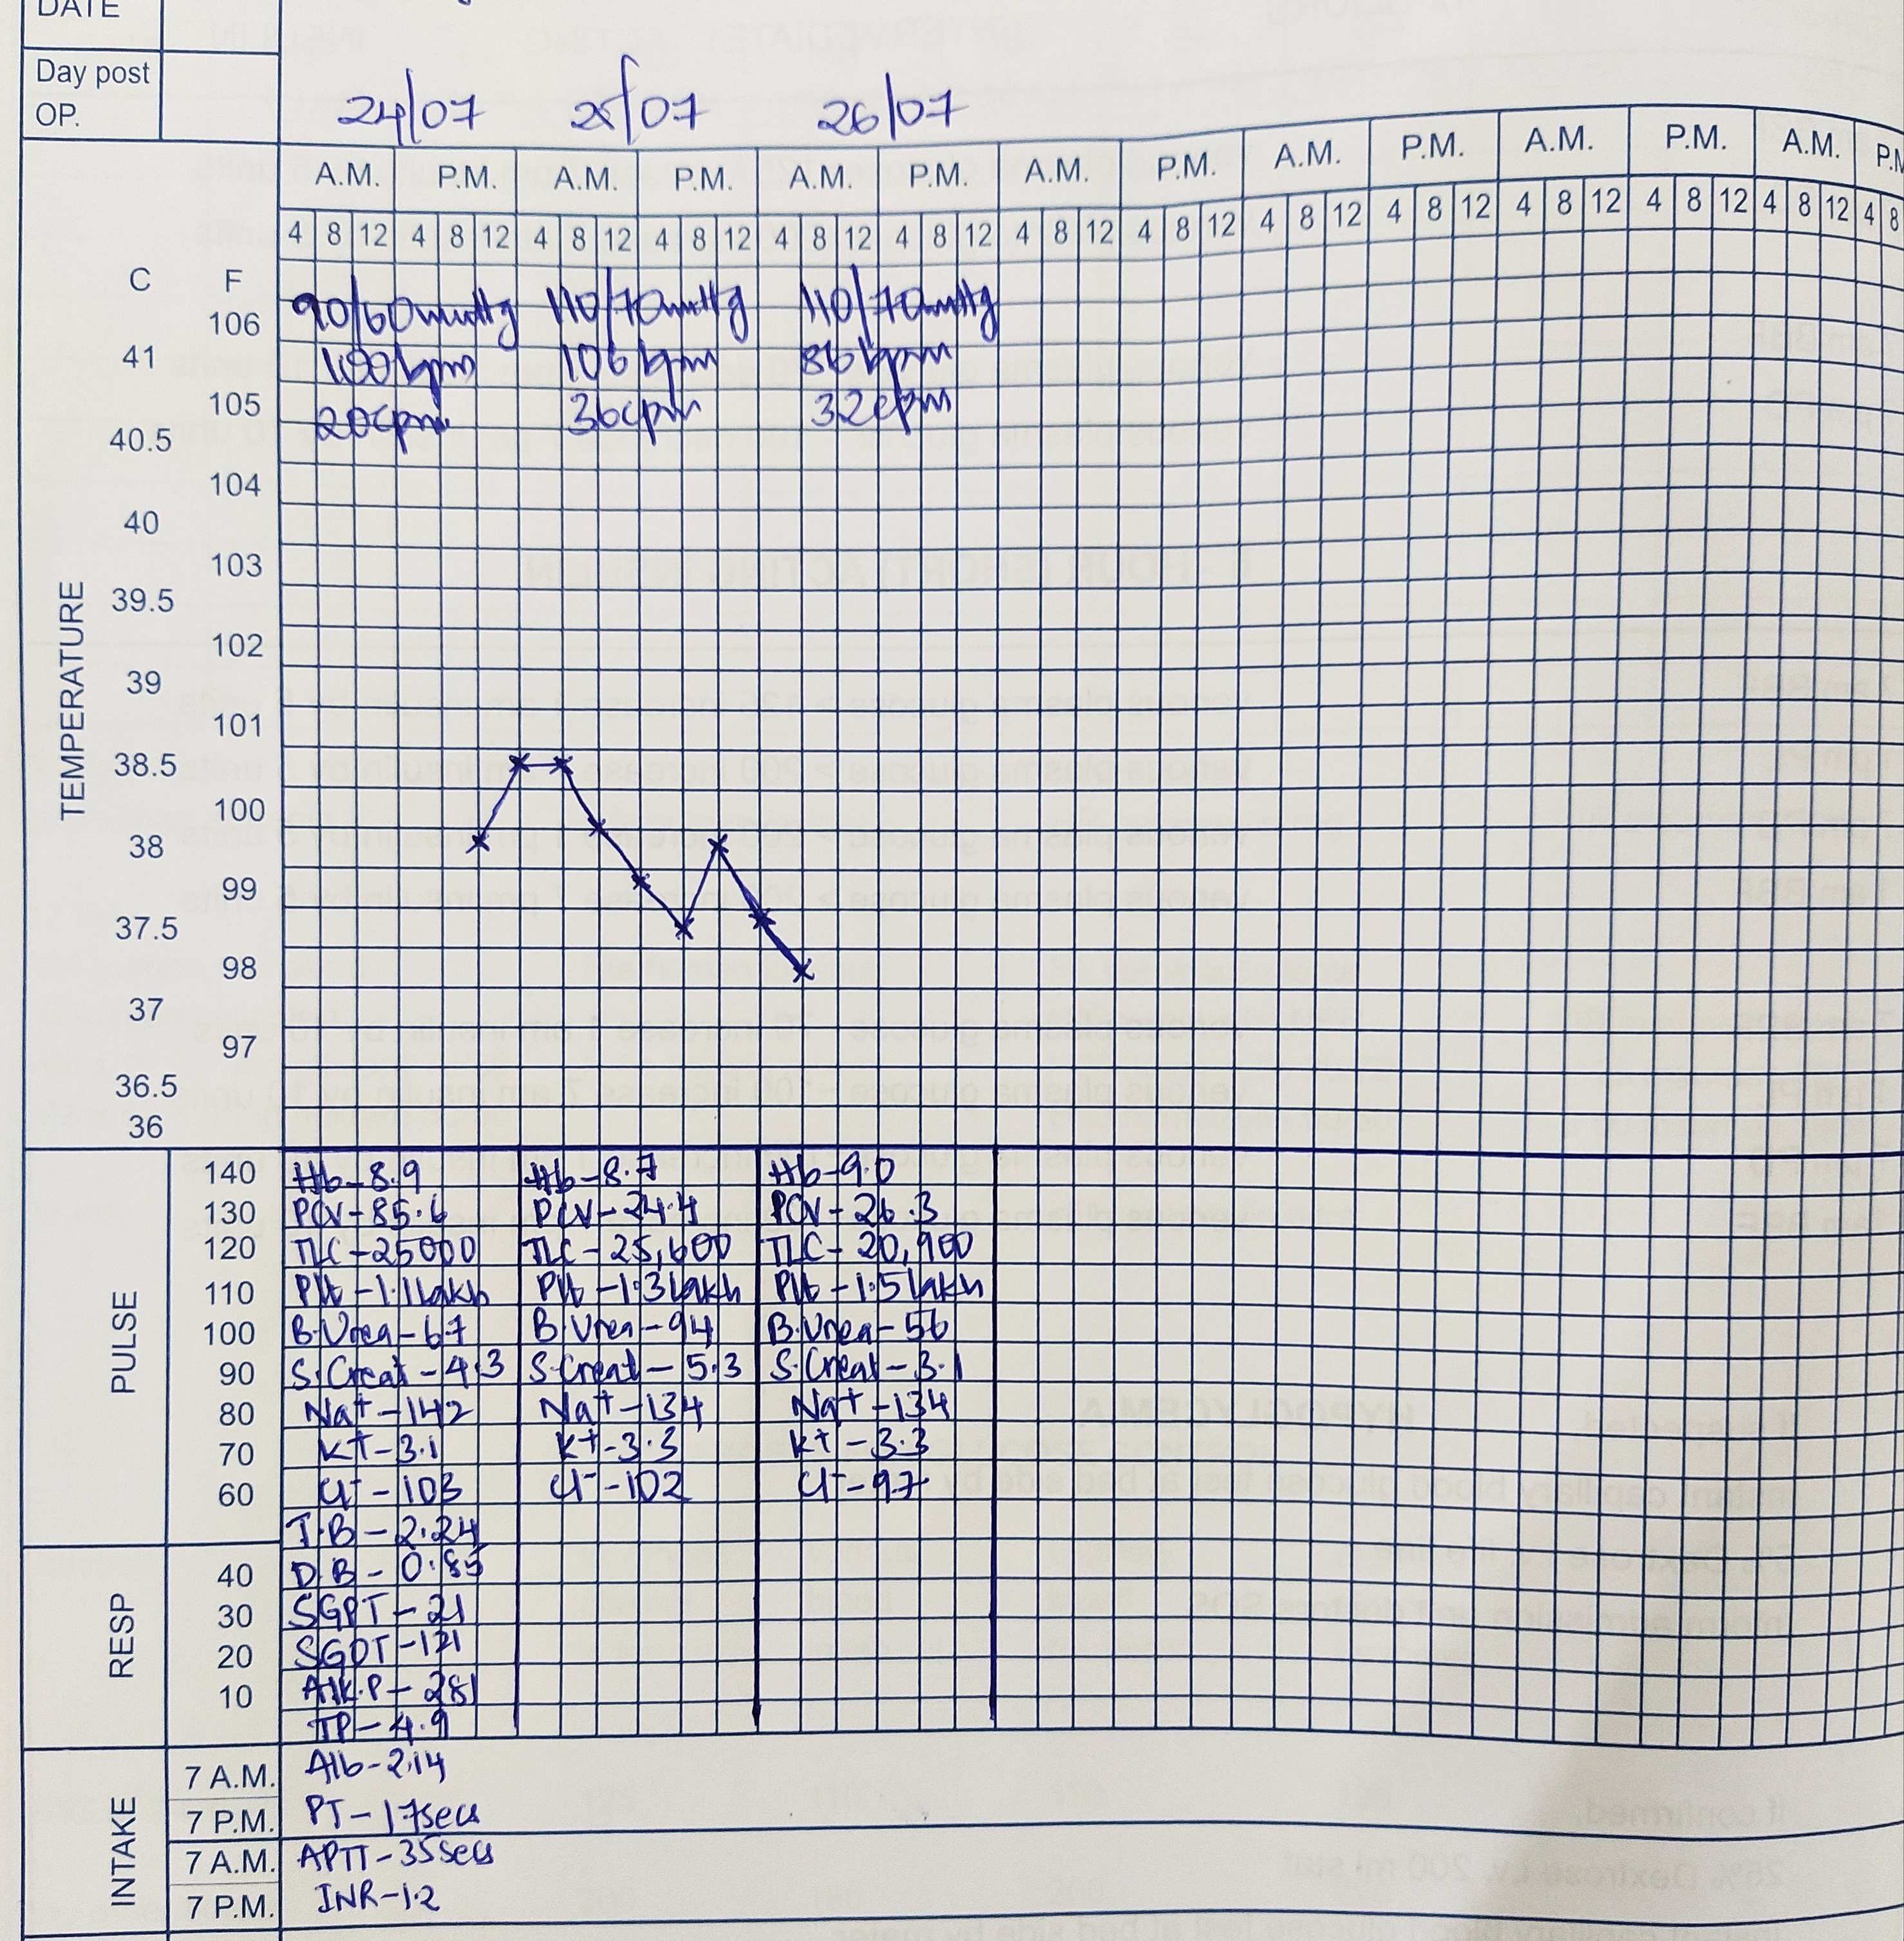 DATE
Day post
OP.
24/07 25/07 26/07
A.M. P.M. A.M. P.M. A.M. P.M. A.M. P.M. A.M. P.M. A.M. P.M. A.M. P.M
4 8 12 4 8 12 4 8 12 4 8 12 4 8 12 4 8 12 4 8 12 4 8 12 4 8 12 4 8 12 4 8 12 4 8 12 4 8 12 4 8
C F
90/60mmHg 110/70mmHg 110/70mmHg
106
41 100bpm 106bpm 86bpm
105 20cpm 36cpm 32cpm
40.5
104
40
103
39.5
TEMPERATURE
102
39
101
38.5
100
38
99
37.5
98
37
97
36.5
36
PULSE
140 Hb-8.9 Hb-8.7 Hb-9.0
130 PCV-85.6 PCV-24.4 PCV-26.3
120 TLC-25000 TLC-25,600 TLC-20,900
110 Plt-1.1lakh Plt-1.3lakh Plt-1.5lakh
100 B.Urea-67 B.Urea-94 B.Urea-56
90 S.Creat-4.3 S.Creat-5.3 S.Creat-3.1
80 Na+-142 Na+-134 Na+-134
70 K+-3.1 K+-3.3 K+-3.3
60 Cl--103 Cl--102 Cl--97
T.B-2.24
RESP
40 D.B-0.85
30 SGPT-21
20 SGOT-121
10 Alk.P-281
TP-4.9
INTAKE
7 A.M. Alb-2.14
7 P.M. PT-17secs
7 A.M. APTT-35secs
7 P.M. INR-1.2